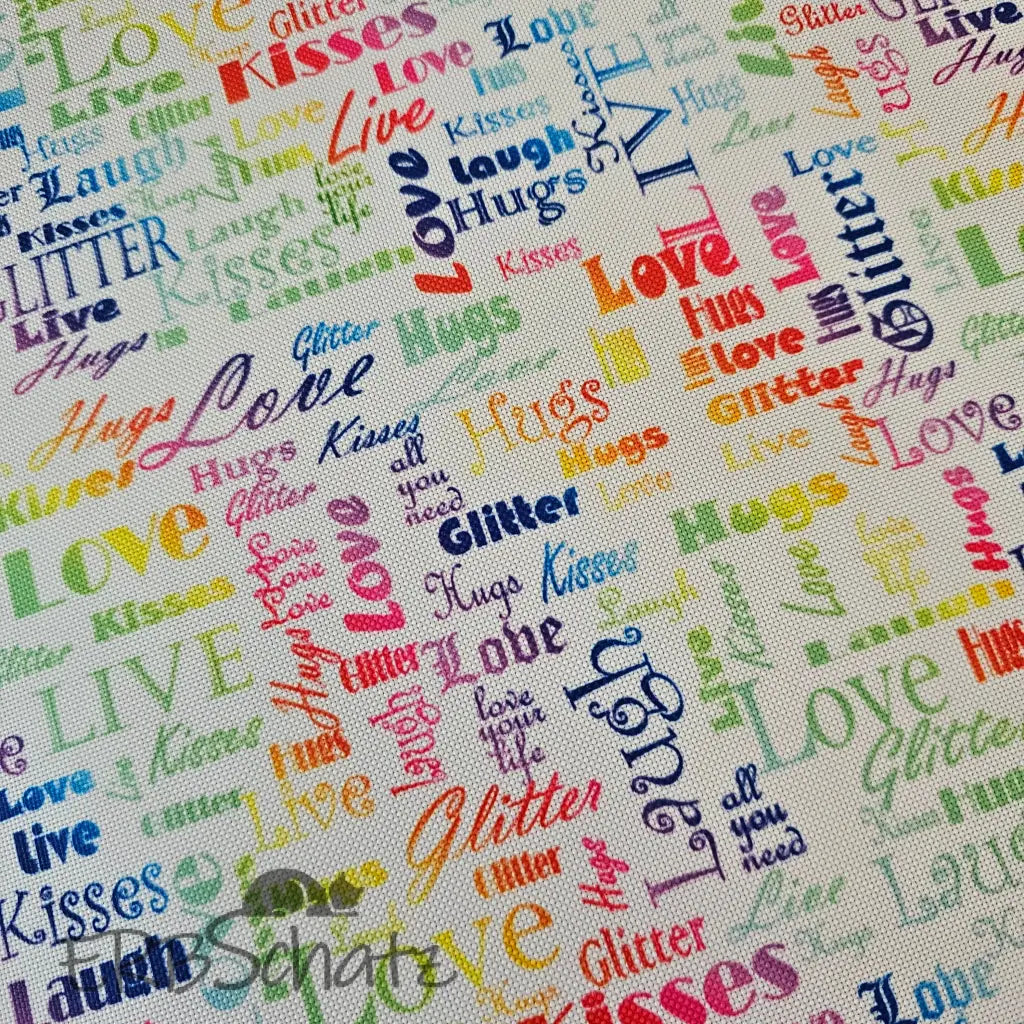 Love
Glitter
Kisses
Love
Love
Glitter
Live
Hugs
Live
Glitter
Love
Live
Kisses
Hugs
Laugh
Hugs
Laugh
Love
LIVE
Kisses
Hugs
Love
Love
Glitter
Kisses
Laugh
love
your
life
Love
Hugs
GLITTER
Kisses
Live
Hugs
Kisses
Love
Love
Hugs
Hugs
Glitter
Hugs
Love
love
Glitter
Hugs
Hugs
Love
Love
Kisses
Hugs
Hugs
Live
Laugh
Love
Kisses
Hugs
Glitter
all
you
need
Glitter
Love
Hugs
Hugs
Love
Love
Love
Love
Love
Kisses
Hugs
Kisses
Laugh
Kisses
Love
LIVE
Hugs
Glitter
Love
Laugh
Live
Love
Hugs
Kisses
Laugh
love
your
life
Glitter
Love
live
Glitter
Live
Glitter
Glitter
Hugs
all
you
need
Kisses
Live
Laugh
Laugh
Love
Glitter
Kisses
Love
ERBSchatz